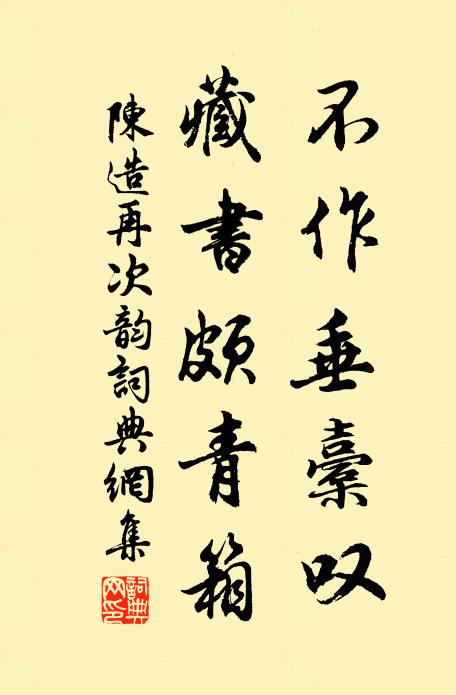 不作垂櫜叹
藏書頗青箱
陳造再次韵詞典網集
詞典网印